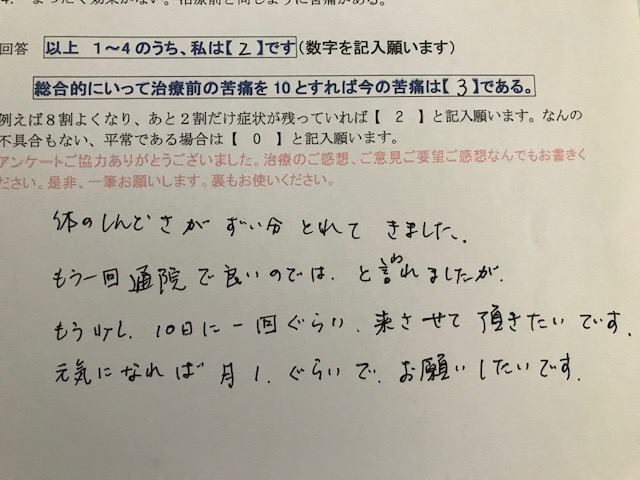 4. まったく効果がない。治療前と同じように苦痛がある。
回答 以上 1～4のうち、私は【 2 】です(数字を記入願います)
総合的にいって治療前の苦痛を10とすれば今の苦痛は【 3 】である。
例えば8割よくなり、あと2割だけ症状が残っていれば【 2 】と記入願います。なんの
不具合もない、平常である場合は【 0 】と記入願います。
アンケートご協力ありがとうございました。治療のご感想、ご意見ご要望ご感想なんでもお書きく
ださい。是非、一筆お願いします。裏もお使いください。
体のしんどさが ずい分 とれて きました、
もう一回 通院 で 良いのでは、と言(わ)れましたが、
もう少し、10日に一回ぐらい、来させて 頂きたい です。
元気になれば 月1、ぐらいで、お願いしたいです。